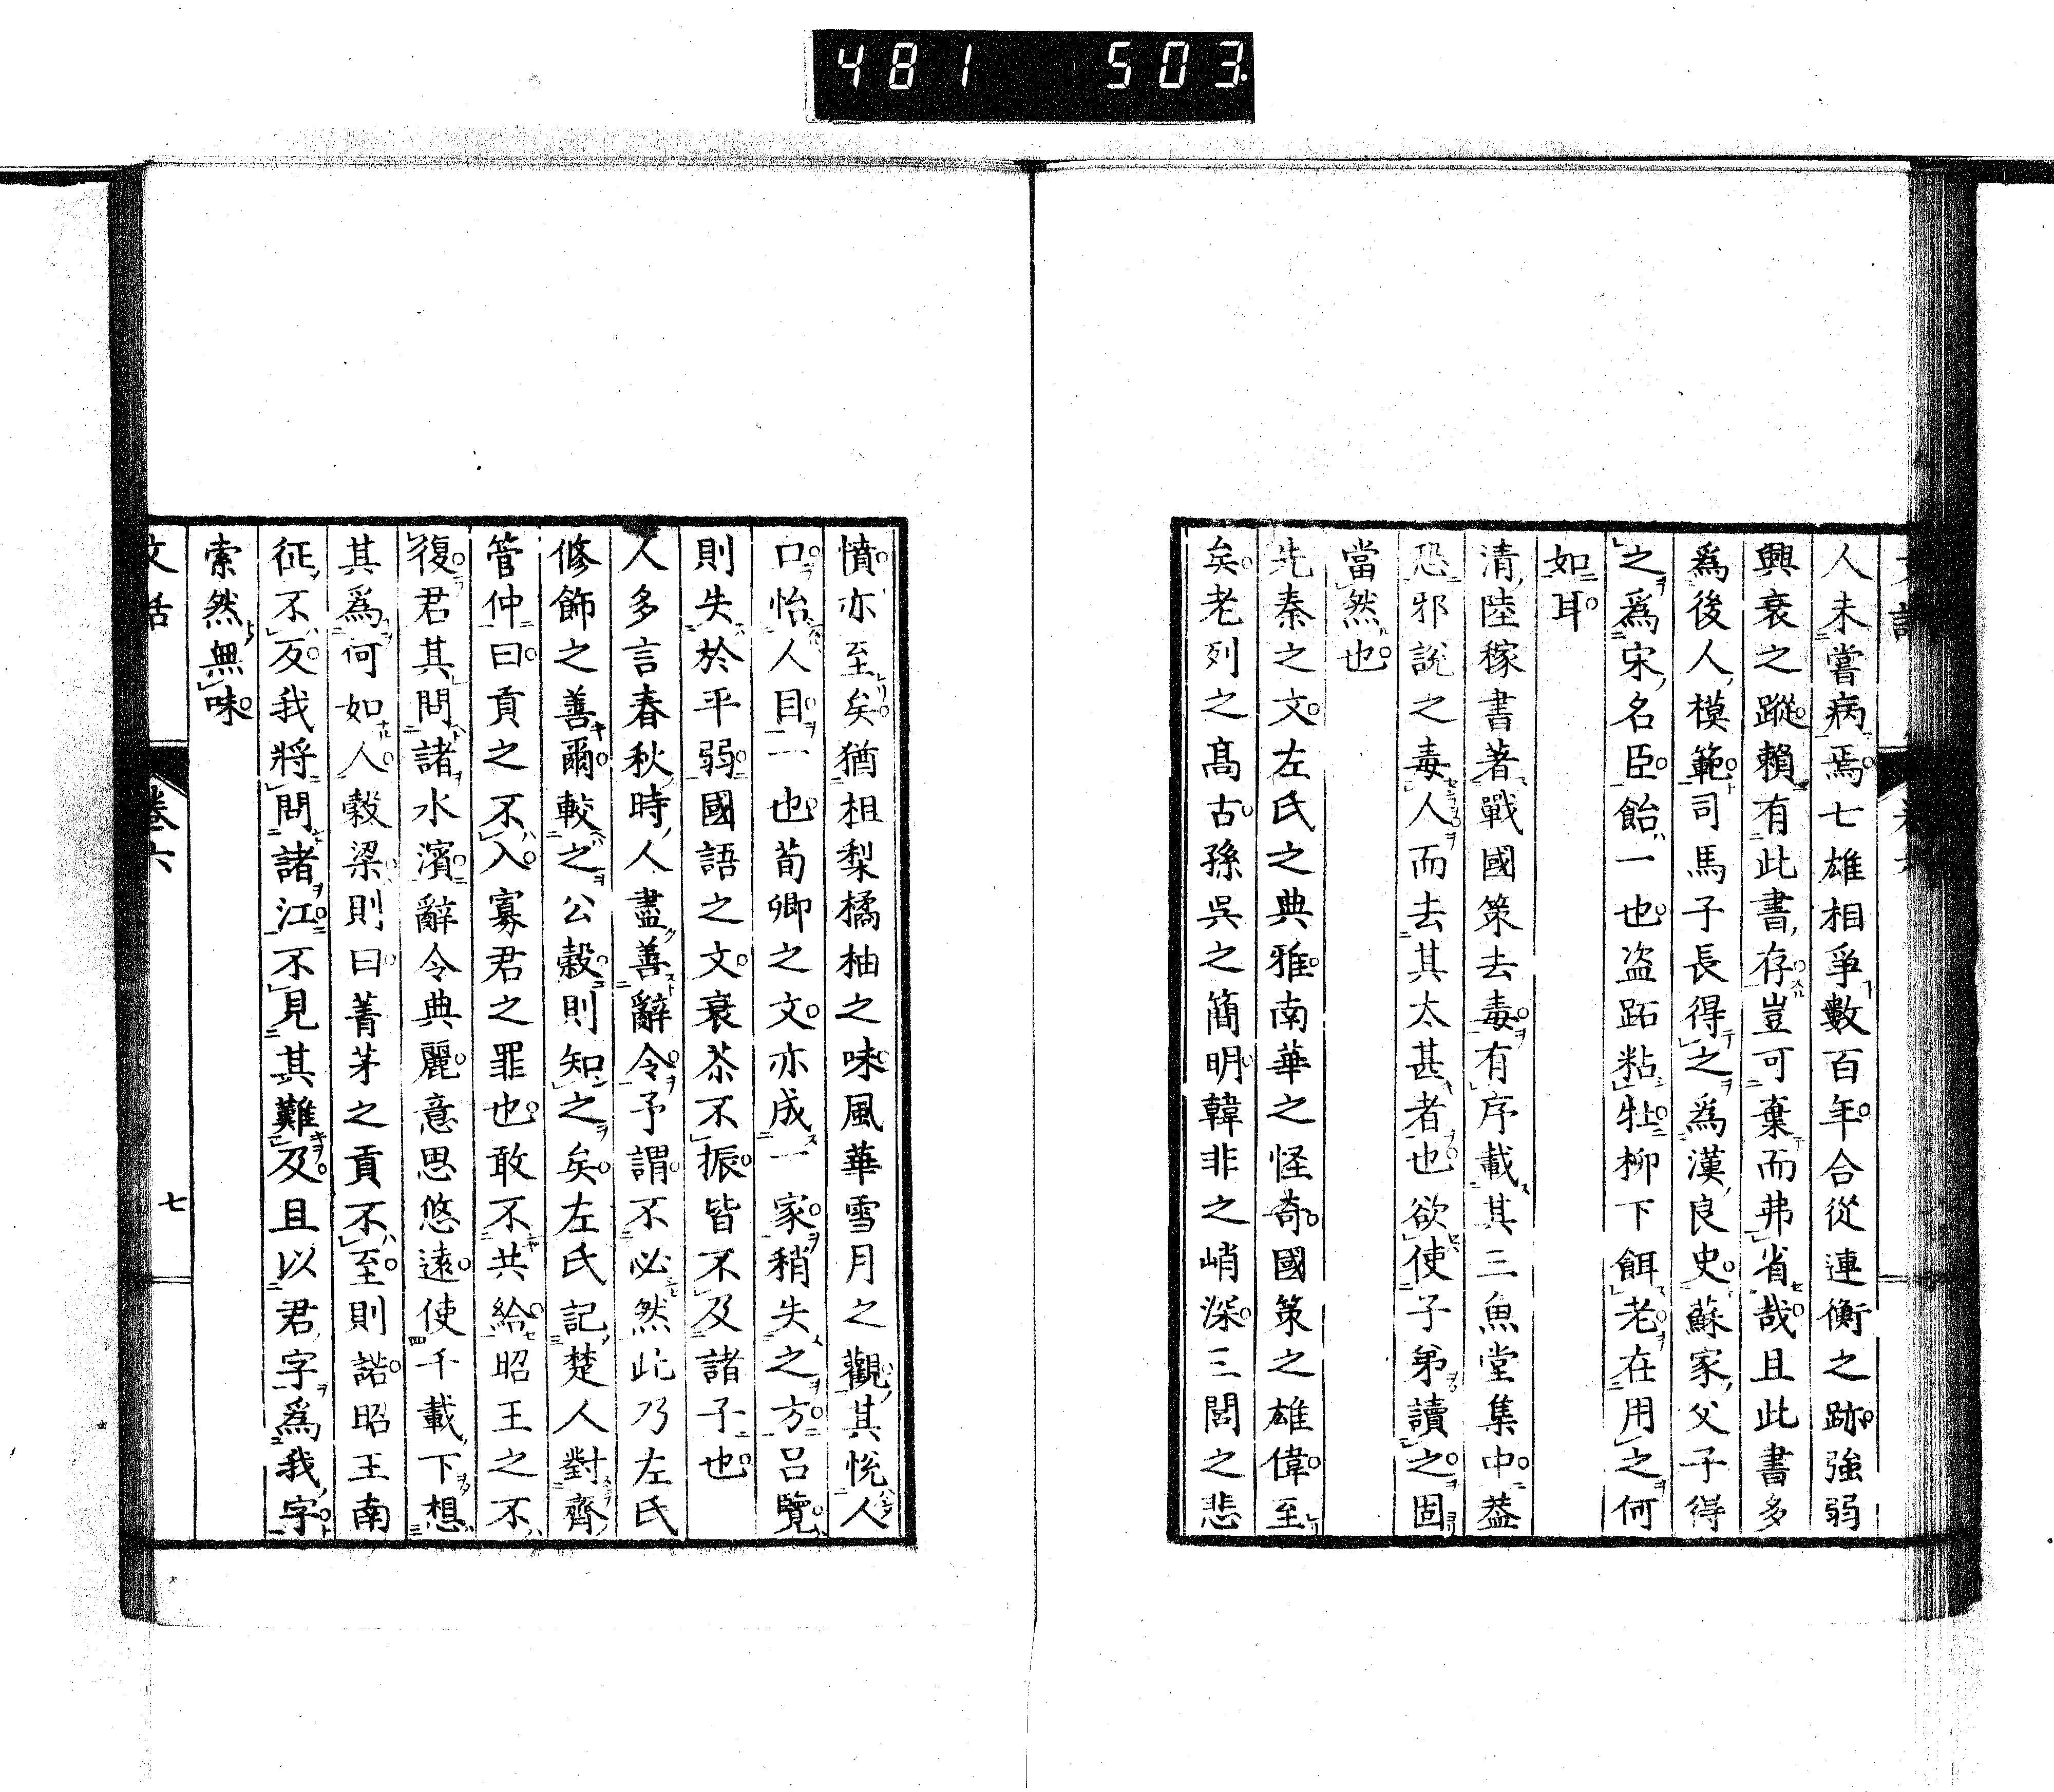 481 503
人未嘗病焉七雄相爭數百年合從連衡之跡強弱
興衰之蹤賴有此書存豈可棄而弗省哉且此書多
爲後人模範司馬子長得之爲漢良史蘇家父子得
之爲宋名臣飴一也盜跖粘牡柳下餌老在用之何
如耳
清陸稼書著戰國策去毒有序載其三魚堂集中葢
恐邪說之毒人而去其太甚者也欲使子弟讀之固
當然也
先秦之文左氏之典雅南華之怪奇國策之雄偉至
矣老列之高古孫吳之簡明韓非之峭深三閭之悲
憤亦至矣猶柤梨橘柚之味風華雪月之觀其悅人
口怡人目一也荀卿之文亦成一家稍失之方呂覽
則失於平弱國語之文衰苶不振皆不及諸子也
人多言春秋時人盡善辭令予謂不必然此乃左氏
修飾之善爾較之公穀則知之矣左氏記楚人對齊
管仲曰貢之不入寡君之罪也敢不共給昭王之不
復君其問諸水濱辭令典麗意思悠遠使千載下想
其爲何如人穀梁則曰菁茅之貢不至則諾昭王南
征不反我將問諸江不見其難及且以君字爲我字
索然無味
文話
卷六
七